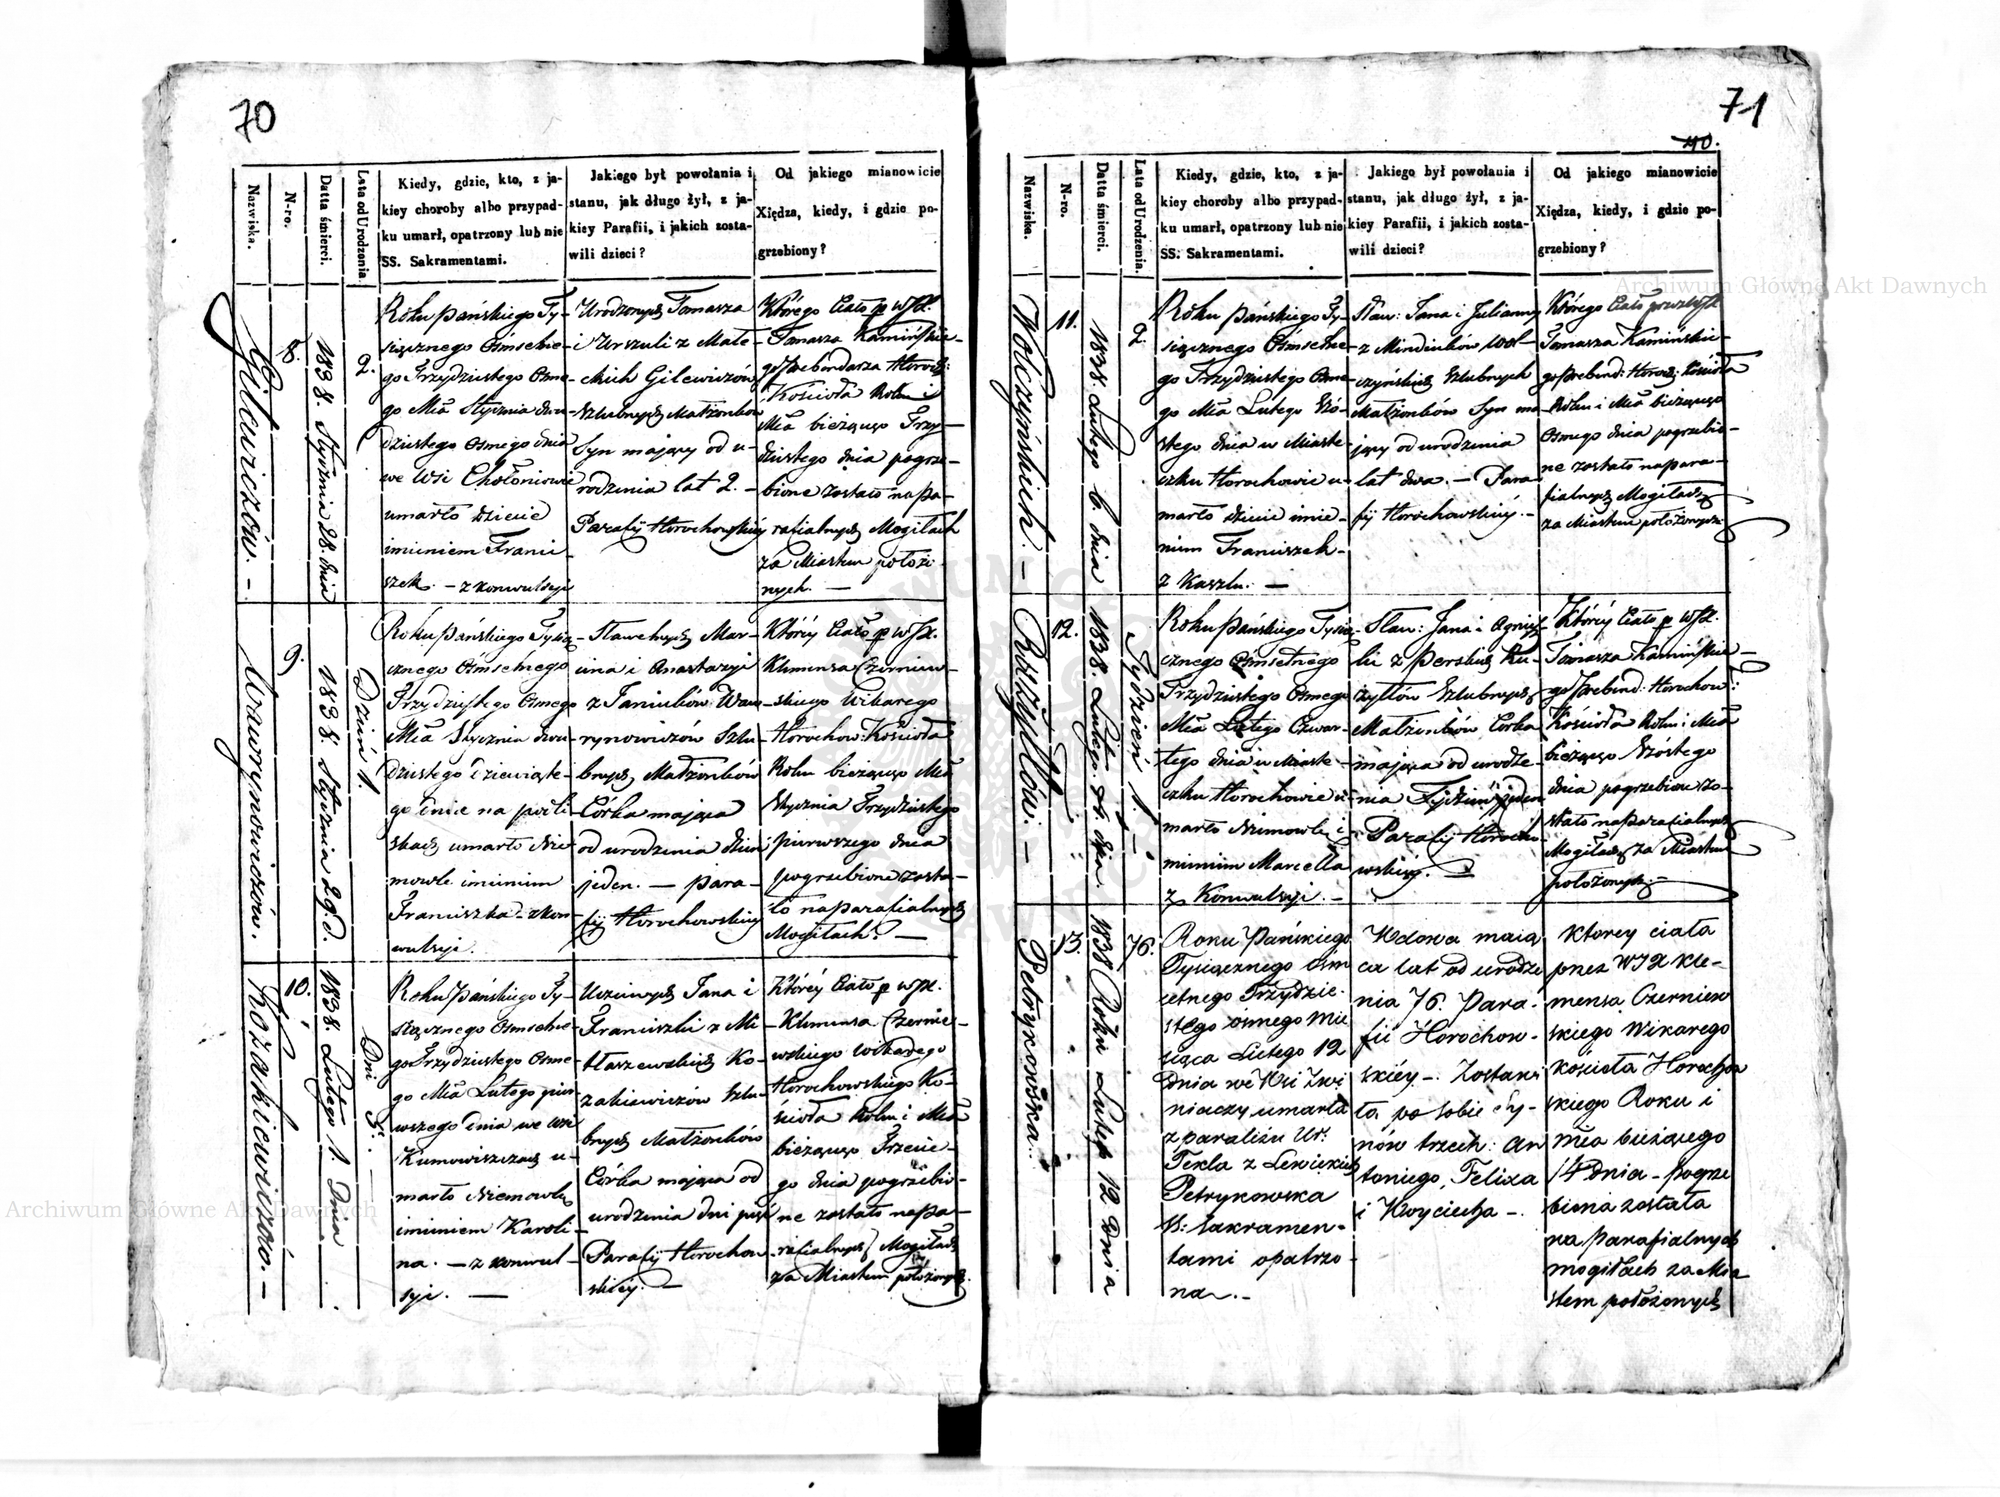 70
Nazwiska.
N-ro.
Datta śmierci.
Lata od Urodzenia.
Kiedy, gdzie, kto, z ja-
kiey choroby albo przypad-
ku umarł, opatrzony lub nie
SS. Sakramentami.
Jakiego był powołania i
stanu, jak długo żył, z ja-
kiey Parafii, i jakich zosta-
wili dzieci?
Od jakiego mianowicie
Xiędza, kiedy, i gdzie po-
grzebiony?
Gilewiczów. -
8.
1838. Stycznia 28. dnia
2.
Roku Pańskiego Ty-
siącznego Ośmsetne-
go Trzydziestego Osme-
go Mca Stycznia dwu-
dziestego osmego dnia
we Wsi Chołoniowie
umarło dziecie
imieniem Franci-
szek. - z konwulsyi
Urodzonych Tomasza
i Urszuli z Małe-
ckich Gilewiczów
Szlubnych Małżonków
Syn mający od u-
rodzenia lat 2. -
Parafij Horochowskiey
Którego Ciało p WJX.
Tomasza Kamińskie-
go Prebendarza Horoch:
Kościoła Roku i
Mca bieżącego Trzy-
dziestego dnia pogrze-
bione zostało na pa-
rafialnych Mogiłach
za Miastem położo-
nych. -
Wawrynowiczów.
9.
1838. Stycznia 29. d.
Dzień 1.
Roku Pańskiego Tysią-
cznego Ośmsetnego
Trzydziestego Osmego
Mca Stycznia dwu-
dziestego dziewiąte-
go dnia na
umarło Nie-
mowle imieniem
Franciszka z kon-
wulsyi.
Sławetnych Mar-
cina i Anastazyi
z Janiuków Waw-
rynowiczów Szlu-
bnych Małżonków
Córka mająca
od urodzenia dzień
jeden. - Para-
fij Horochowskiey
Któréy Ciało p WJX.
Klemensa Czerniew-
skiego Wikarego
Horochow: Kościoła
Roku bieżącego Mca
Stycznia Trzydziestego
pierwszego dnia
pogrzebione zosta-
ło na parafialnych
Mogiłach. -
Kozakiewiczów. -
10.
1838. Lutego 1. Dnia
Dni 5.
Roku Pańskiego Ty-
siącznego Ośmsetne-
go Trzydziestego Osme-
go Mca Lutego pier-
wszego dnia we wsi
u-
marło Niemowle
imieniem Karoli-
na. - z konwul-
syi. -
Uczciwych Jana i
Franciszki z Mi-
taszewskich Ko-
zakiewiczów Szlu-
bnych Małżonków
Córka mająca od
urodzenia dni pięć
Parafij Horochow-
skiey. -
Któréy Ciało p WJX.
Klemensa Czernie-
wskiego Wikarego
Horochowskiego Ko-
ścioła Roku i Mca
bieżącego Trzecie-
go dnia pogrzebio-
ne zostało na pa-
rafialnych Mogiłach
za Miastem położonych.
71
40.
Nazwiska.
N-ro.
Datta śmierci.
Lata od Urodzenia.
Kiedy, gdzie, kto, z ja-
kiey choroby albo przypad-
ku umarł, opatrzony lub nie
SS. Sakramentami.
Jakiego był powołania i
stanu, jak długo żył, z ja-
kiey Parafii, i jakich zosta-
wili dzieci?
Od jakiego mianowicie
Xiędza, kiedy, i gdzie po-
grzebiony?
Wołczyńskich. -
11.
1838. Lutego 6. dnia
2.
Roku Pańskiego Ty-
siącznego Ośmsetne-
go Trzydziestego Osme-
go Mca Lutego Szó-
stego dnia w Miaste-
czku Horochowie u-
marło dziecie imie-
niem Franciszek -
z Kaszlu. -
Sław: Jana i Julianny
z Mindiuków Woł-
czyńskich Szlubnych
Małżonków Syn ma-
jący od urodzenia
lat dwa. - Para-
fij Horochowskiey. -
Którego Ciało przez WJX.
Tomasza Kamińskie-
go Prebend: Horoch: Kościoła
Roku i Mca bieżącego
Osmego dnia pogrzebio-
ne zostało na para-
fialnych Mogiłach
za Miastem położonych
Roszczyłłów. -
12.
1838. Lutego 4. dnia.
Tydzień 1. -
Roku Pańskiego Tysią-
cznego Ośmsetnego
Trzydziestego Osmego
Mca Lutego Czwar-
tego dnia w Miaste-
czku Horochowie u-
marło Niemowle i-
mieniem Marcella
z Konwulsyi. -
Sław: Jana i Agnisz-
ki z Perskich
Szlubnych
Małżonków Córka
mająca od urodze-
nia Tydzień jeden
Parafij Horocho-
wskiey. -
Któréy Ciało p WJX.
Tomasza Kamińskie-
go Prebend: Horochow:
Kościoła Roku i Mca
bieżącego Szóstego
dnia pogrzebione zo-
stało na parafialnych
Mogiłach za Miastem
położonych -
Petrykowska
13.
1838 Roku Lutego 12 Dnia
76.
Roku Pańskiego
Tysiącznego Ośm
setnego Trzydzie-
stego ósmego Mie
siąca Lutego 12
Dnia we Wsi Zwi
niaczy umarła
z paraliżu Ur:
Tekla z Lewickich
Petrykowska
SS: Sakramen-
tami opatrzo-
na. -
Wdowa maią
ca lat od urodze
nia 76. Para-
fii Horochow-
skiéy -. Zostawi
ła po sobie Sy-
nów trzech: An
toniego, Felixa
i Woyciecha -.
Ktorey ciała
przez WJX Kle-
mensa Czerniew
skiego Wikarego
kościoła Horochow
skiego Roku i
mca bieżącego
14 Dnia - pogrze
biona została
na parafialnych
mogiłach za Mia
stem położonych